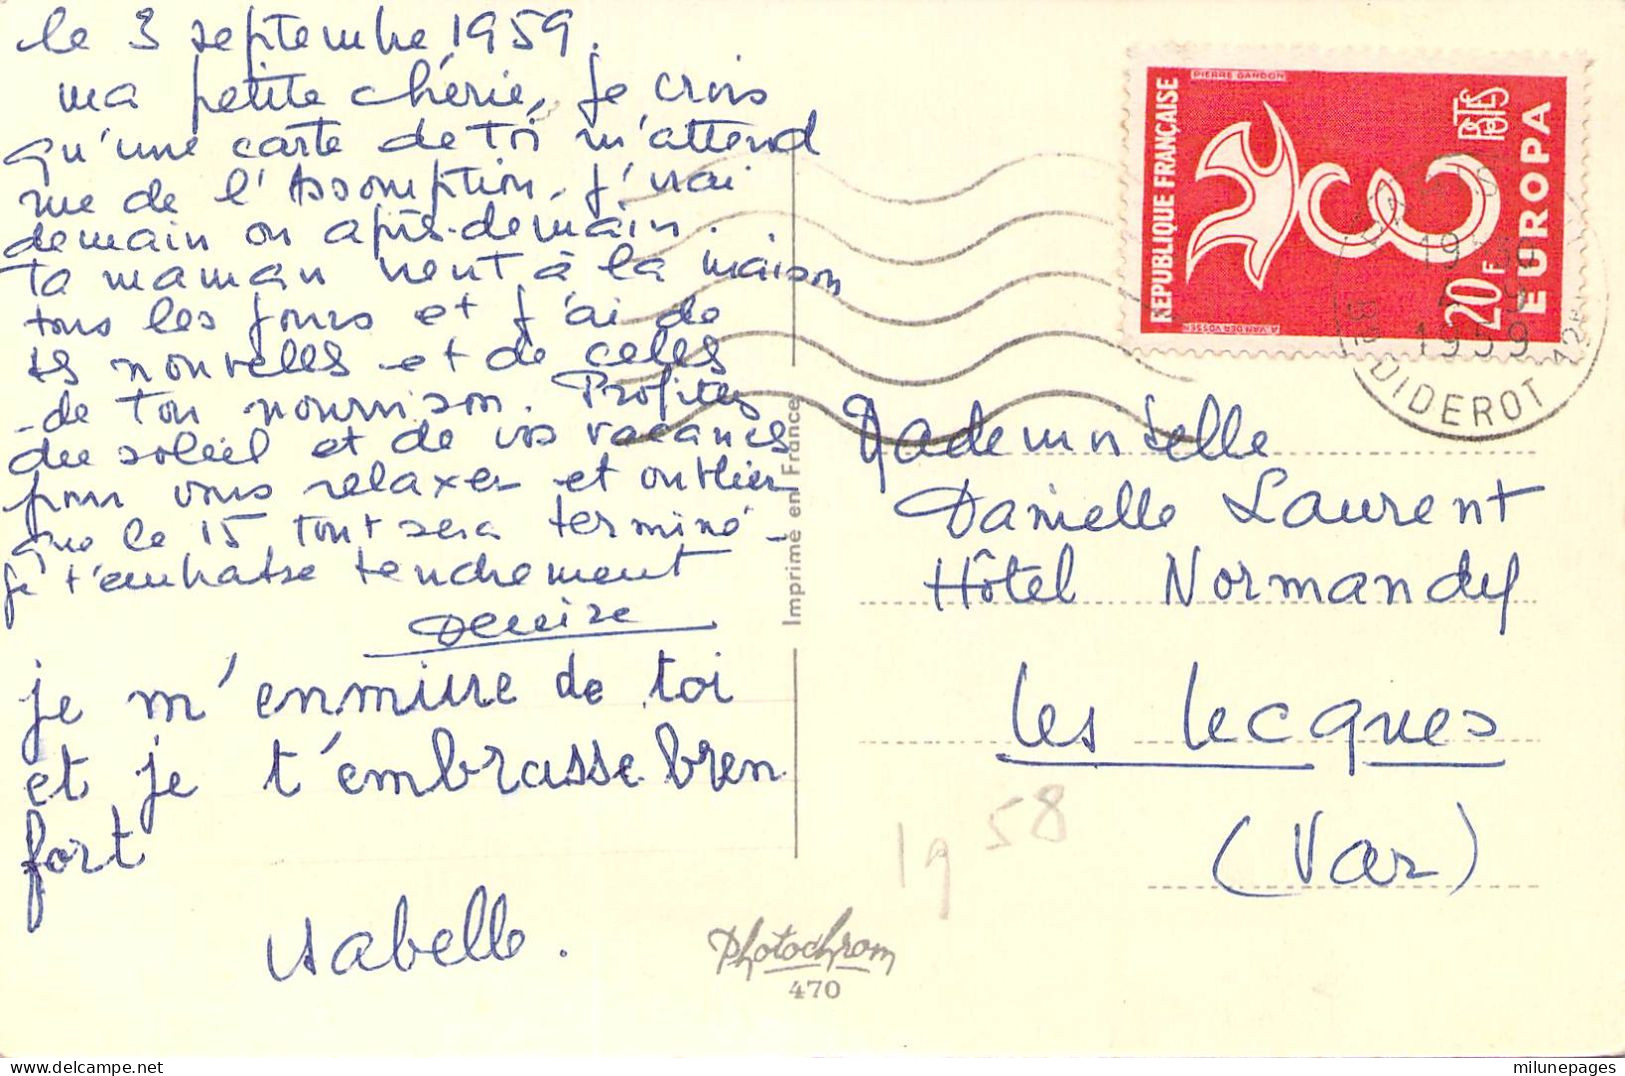 le 3 septembre 1959.
ma petite chérie, je crois
qu'une carte de toi m'attend
rue de l'Assomption. j'irai
demain ou après-demain.
Ta maman vient à la maison
tous les jours et j'ai de
ts nouvelles et de celles
de ton nourrisson. Profites
du soleil et de vos vacances
pour vous relaxer et oublier
que le 15 tout sera terminé
je t'embrasse tendrement
Denise
je m'ennuie de toi
et je t'embrasse bien
fort
Isabelle.
Imprimé en France
Photochrom
470
PIERRE GANDON
RÉPUBLIQUE FRANÇAISE
POSTES
EUROPA
20F
A. VAN DER VOSSEN
1959
BD DIDEROT 12E
Mademoiselle
Danielle Laurent
Hôtel Normandy
Les Lecques
(Var)
1958
milunepages